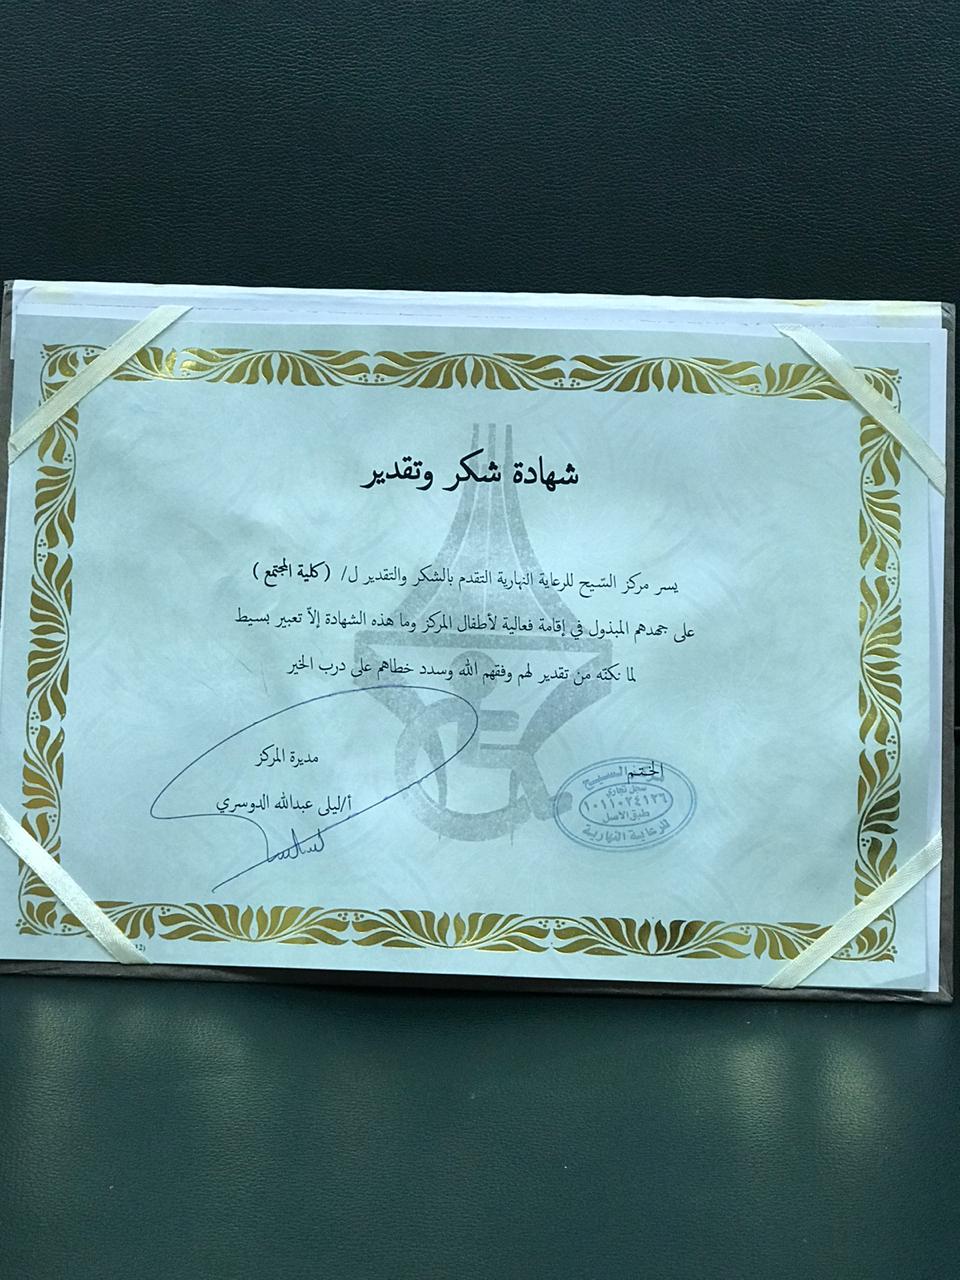 شهادة شكر وتقدير
يسر مركز السّيح للرعاية النهارية التقدم بالشكر والتقدير ل/ (كلية المجتمع )
على جهدهم المبذول في إقامة فعالية لأطفال المركز وما هذه الشهادة إلاّ تعبير بسيط
لما نكنّه من تقدير لهم وفقهم الله وسدد خطاهم على درب الخير
مديرة المركز
أ/ليلى عبدالله الدوسري
الختم
مركز السيح
سجل تجاري
١٠١١٠٢٤١٢٦
طبق الاصل
للرعاية النهارية
12)